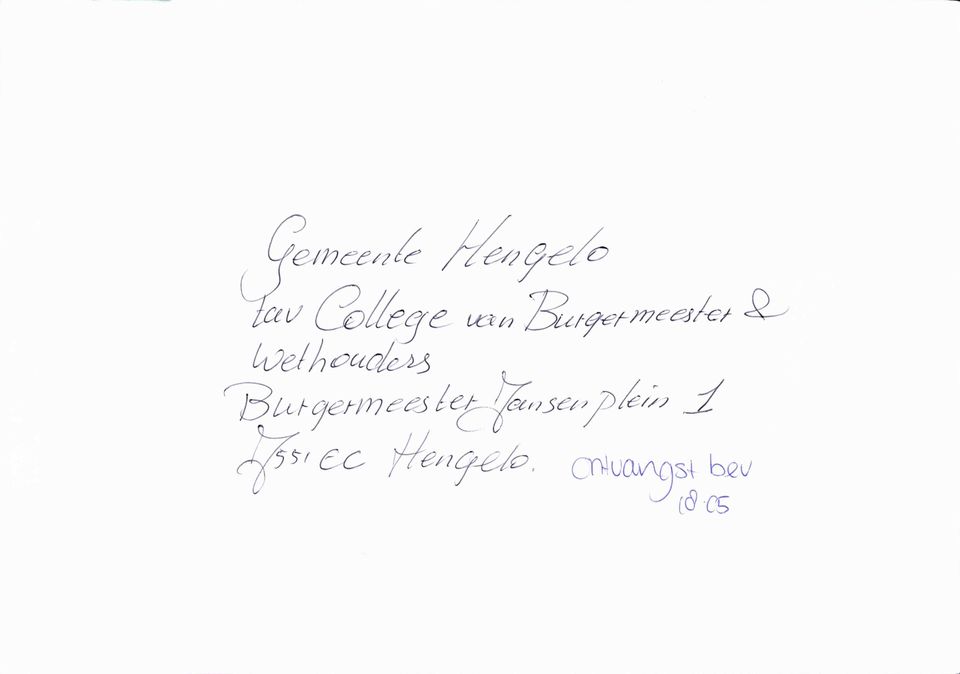 Gemeente Hengelo
tav College van Burgermeester &
Wethouders
Burgermeester Jansenplein 1
7551 EC Hengelo.
ontvangst bev
18.05